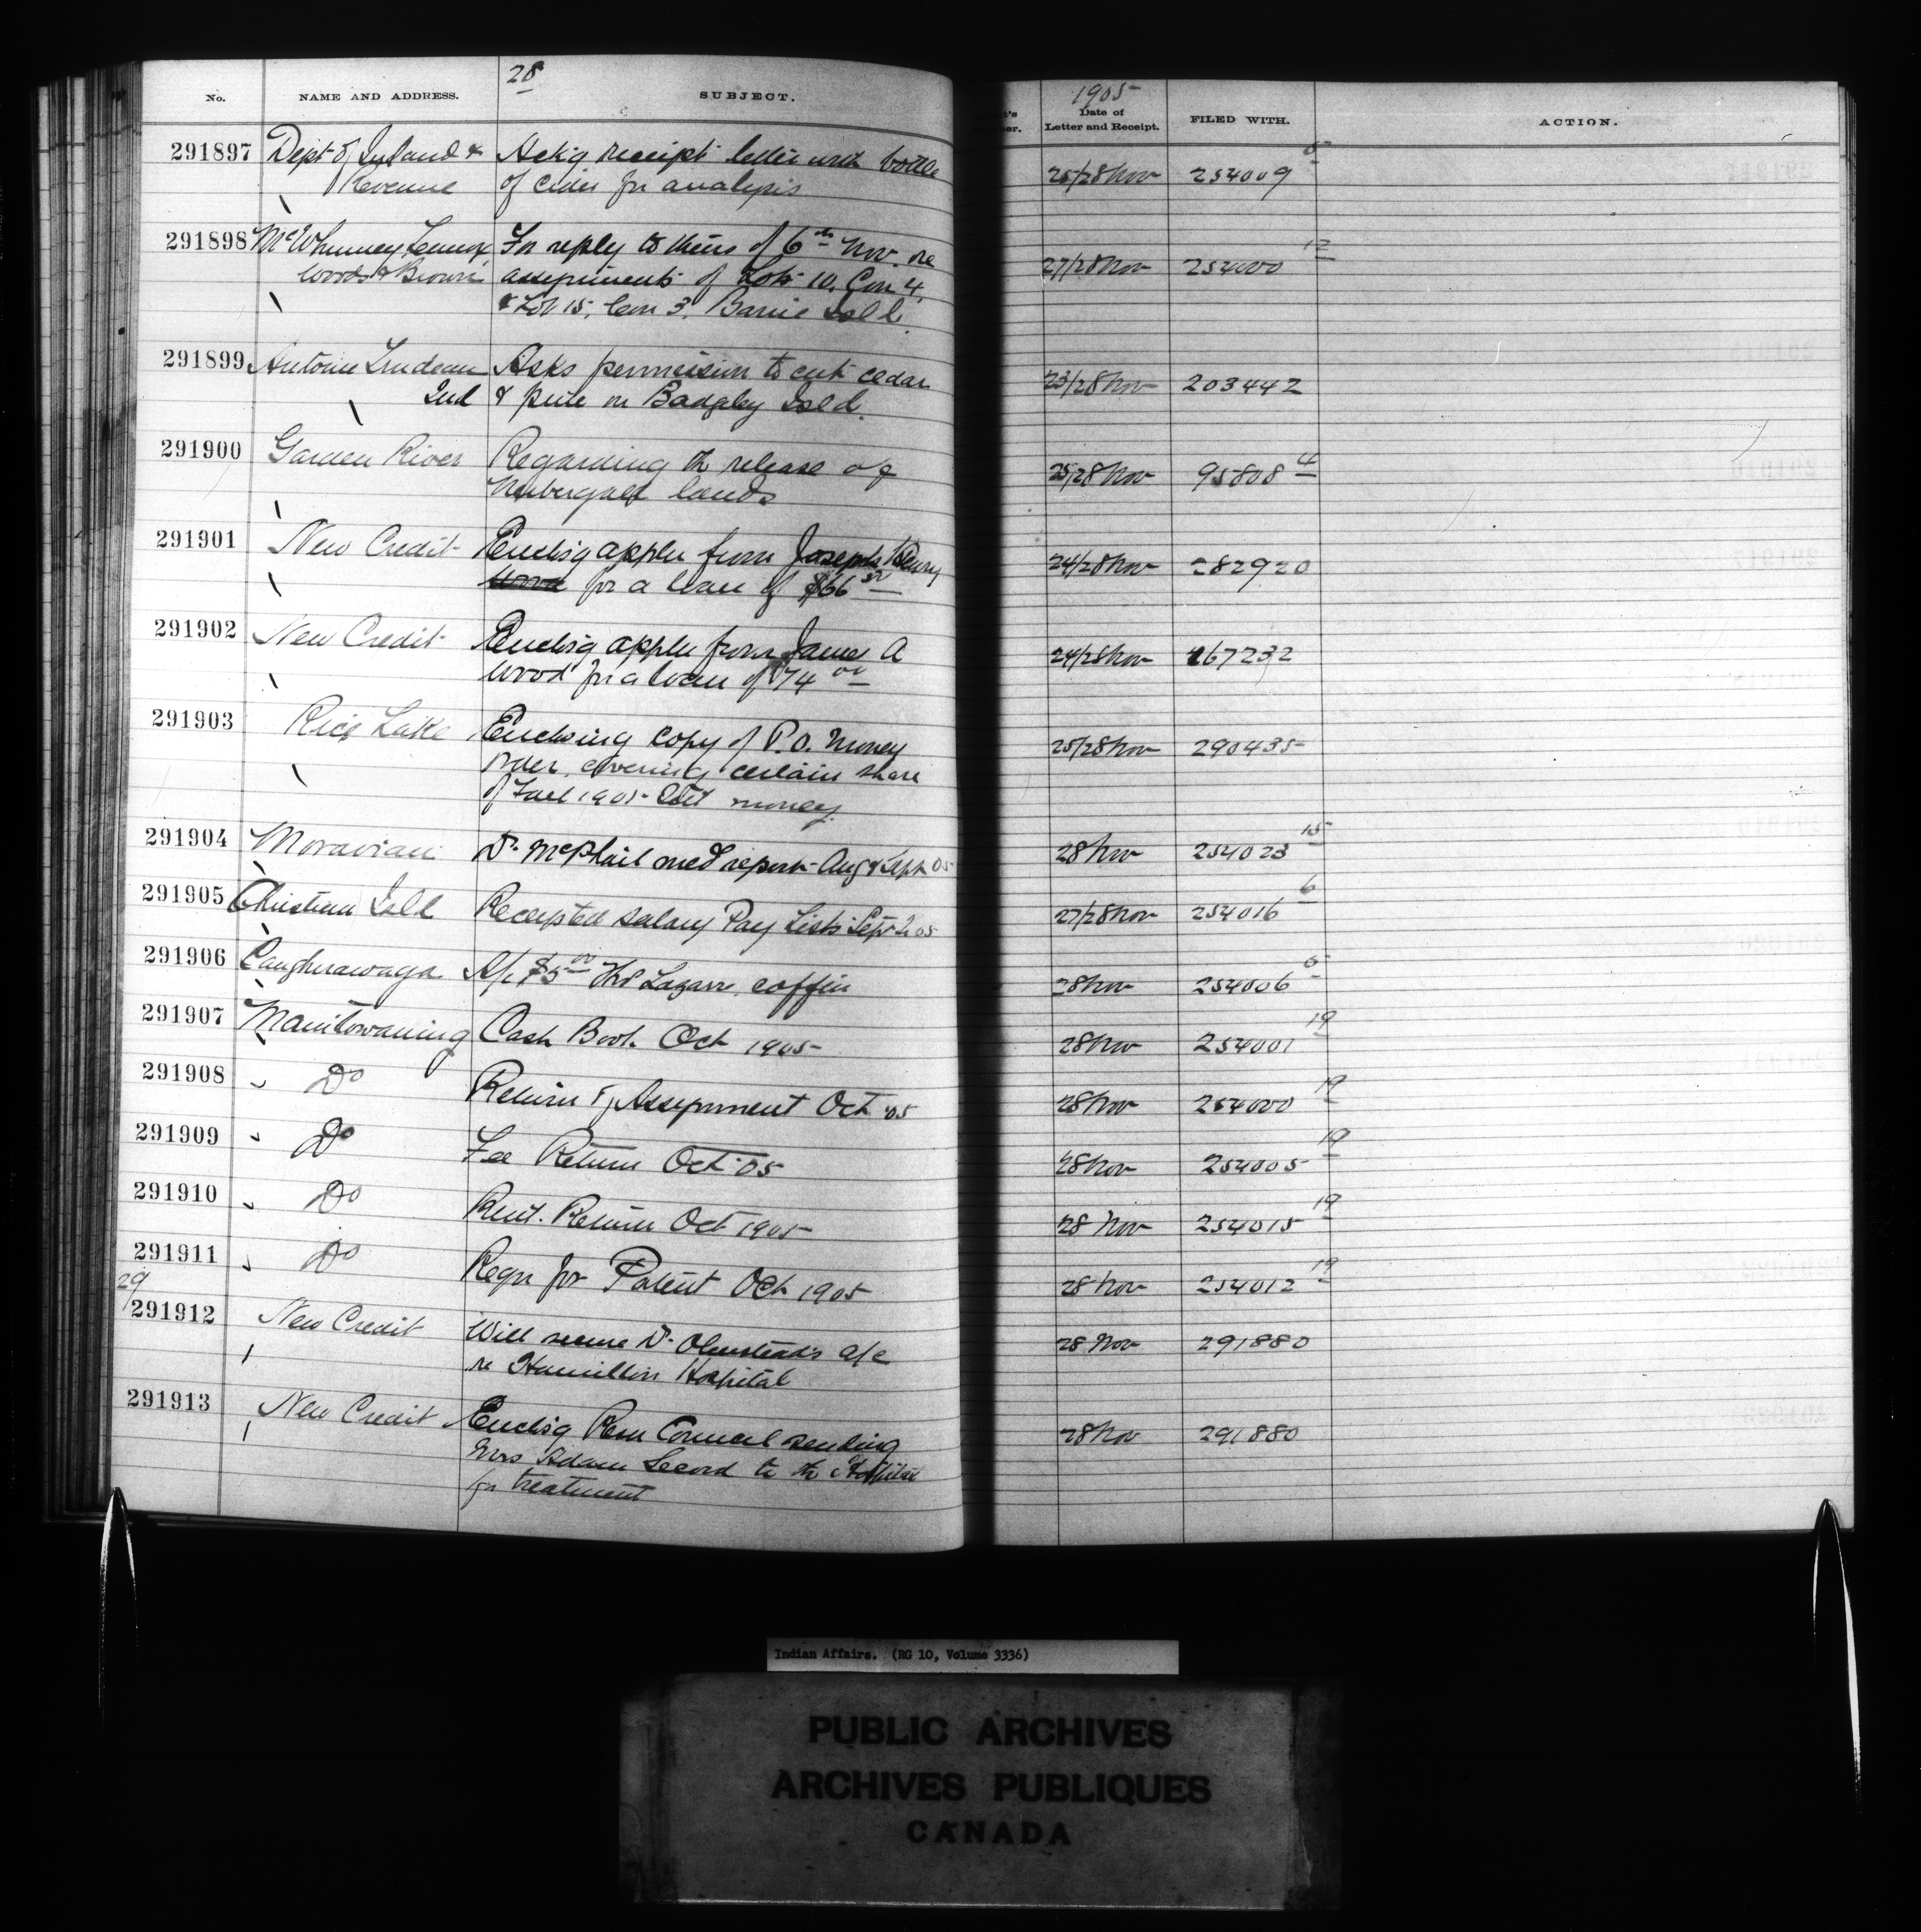 28
No. NAME AND ADDRESS. SUBJECT.
1905
Date of
Letter and Receipt. FILED WITH. ACTION.
291897 Dept of Inland & Ack'g receipt letter with bottle 25/28 Nov 254009 5
Revenue of cider for analysis
291898 McWhinney Lennox For reply to theirs of 6th Nov. re 27/28 Nov 254000 12
Woods & Brown assignments of Lots 10, Con 4,
& Lot 15, Con 3, Barrie Isld.
291899 Antoine Trudeau Asks permission to cut cedar 23/28 Nov 203442
2nd & pine on Badgley Isld.
291900 Garden River Regarding the release of 25/28 Nov 95808 4
lands
291901 New Credit Enclos'g appln from Joseph Henry 24/28 Nov 282920
Wood for a loan of $66
291902 New Credit Enclos'g appln from James A 24/28 Nov 167232
Wood for a loan of $74 00
291903 Rice Lake Enclosing copy of P.O. Money 25/28 Nov 290435
Order, covering certain share
of Fall 1905 Int money
291904 Moravian Dr McPhail med report Aug & Sept 05 28 Nov 254023 15
291905 Christian Isld Receipted salary Pay Lists Sept 05 27/28 Nov 254016 6
291906 Caughnawaga A/c $5 00 Lazare, coffin 28 Nov 254006 5
291907 Manitowaning Cash Book Oct 1905 28 Nov 254001 19
291908 Do Return of Assignment Oct 05 28 Nov 254000 19
291909 Do Fee Return Oct 05 28 Nov 254005 19
291910 Do Rent Return Oct 1905 28 Nov 254015 19
291911 Do Reqn for Patent Oct 1905 28 Nov 254012 19
29
291912 New Credit Will secure Dr Olmstead's a/c 28 Nov 291880
re Hamilton Hospital
291913 New Credit Enclos'g Resn Council sending 28 Nov 291880
Mrs Adam Secord to the Hospital
for treatment
Indian Affairs. (RG 10, Volume 3336)
PUBLIC ARCHIVES
ARCHIVES PUBLIQUES
CANADA